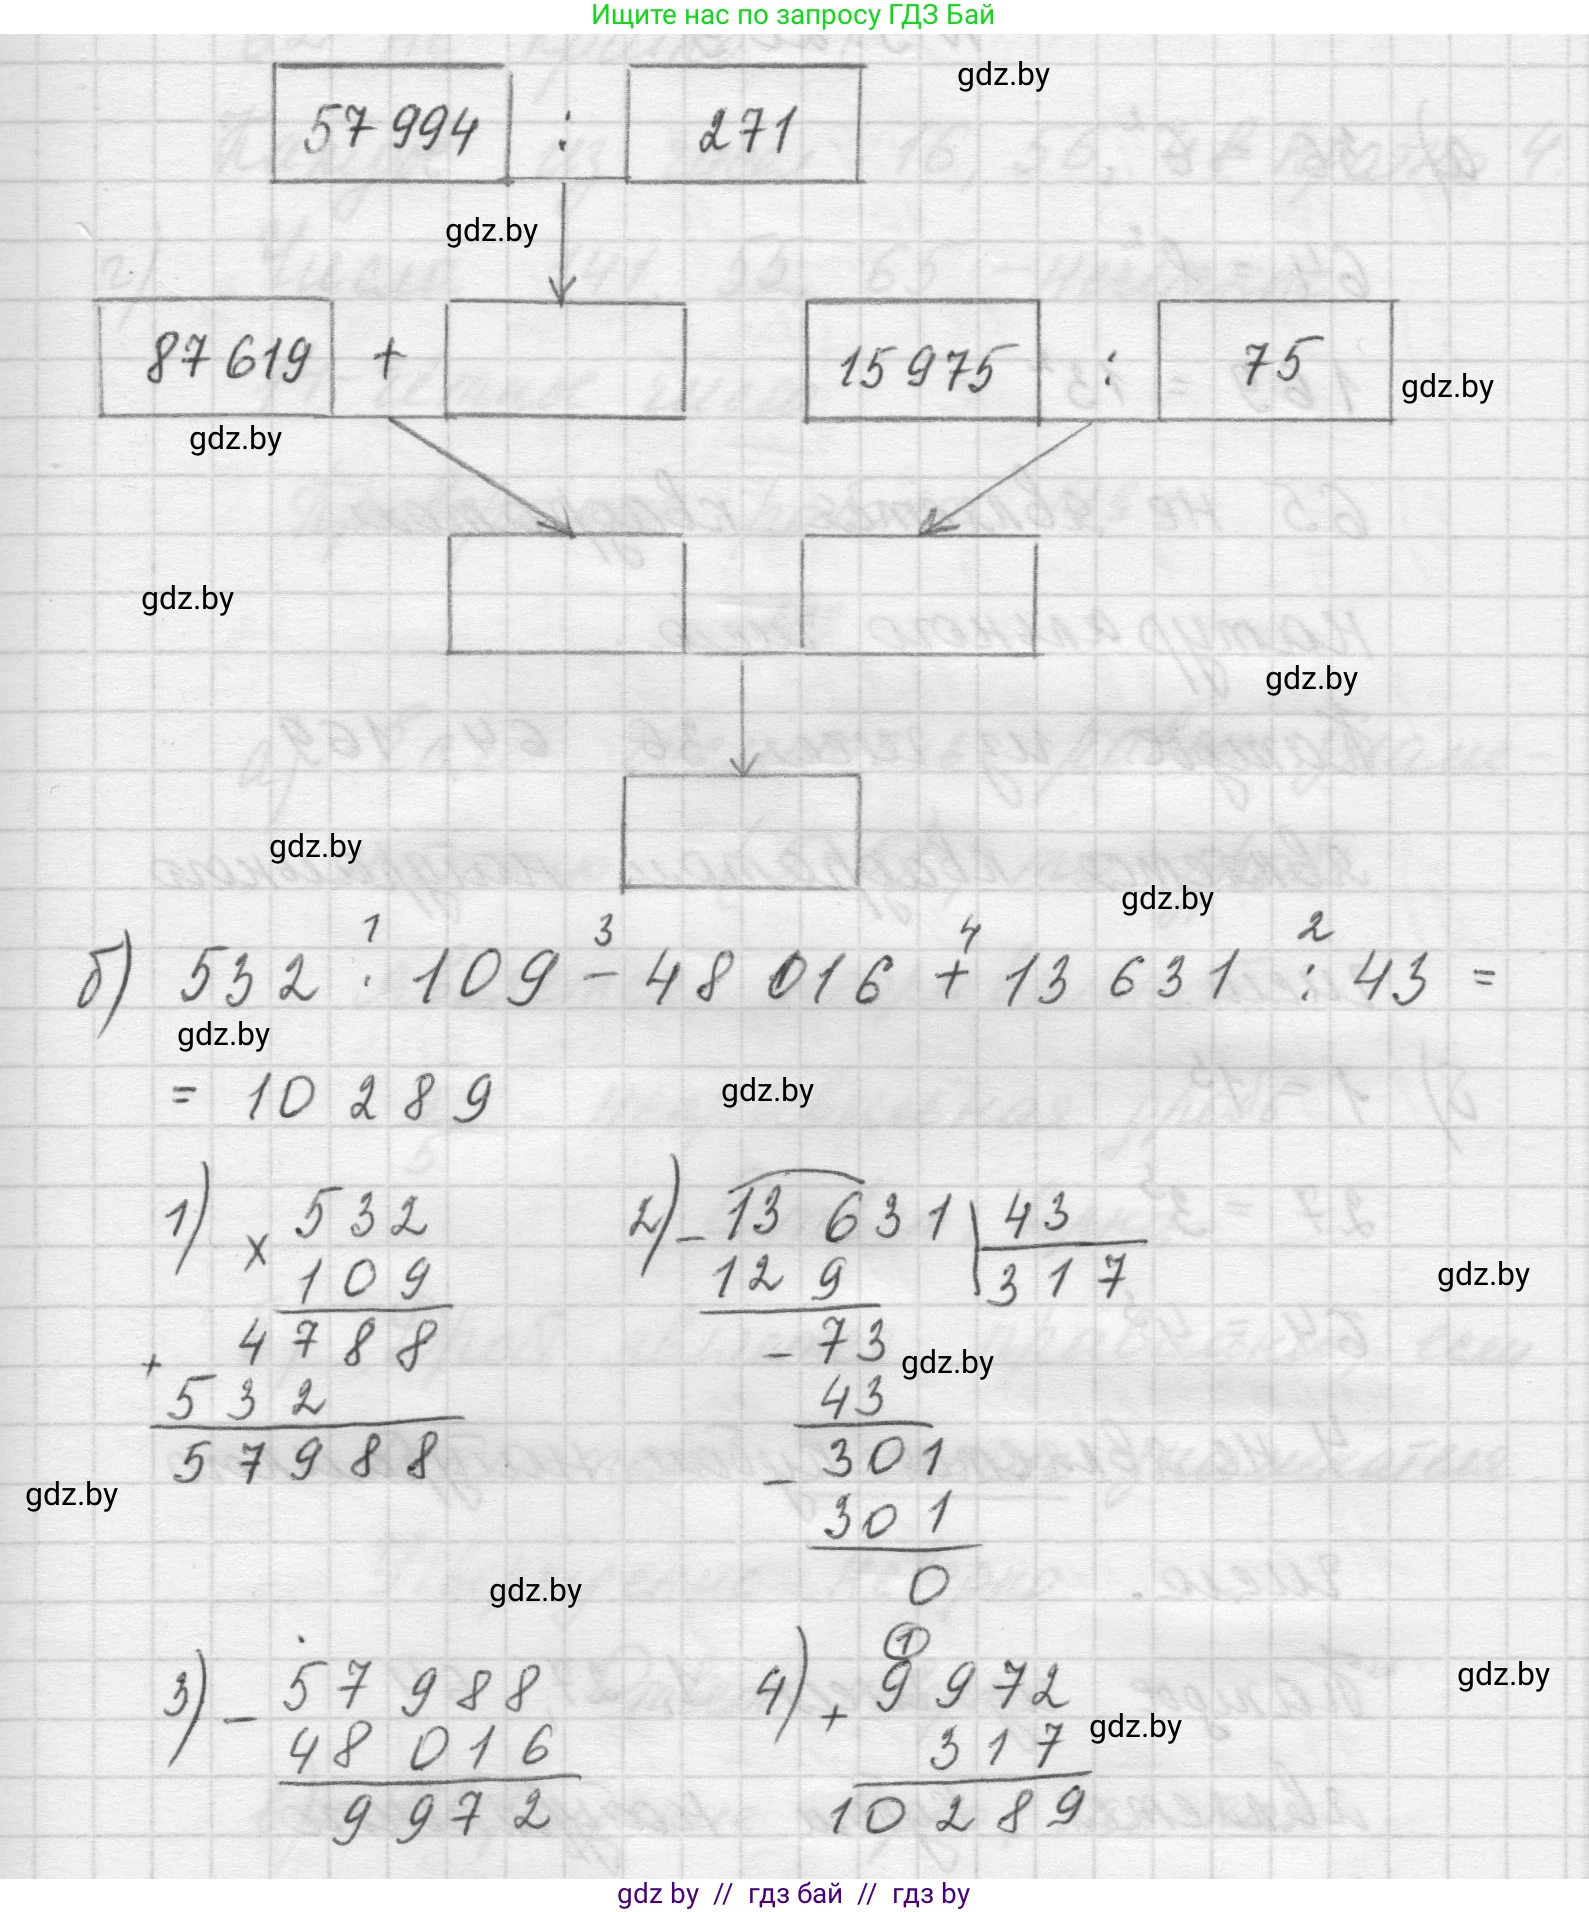 Ищите нас по запросу ГДЗ Бай
gdz.by
57 994 : 271
gdz.by
87 619 + 15 975 : 75
gdz.by
gdz.by
gdz.by
gdz.by
gdz.by
gdz.by
1 3 4 2
б) 532 · 109 – 48 016 + 13 631 : 43 =
gdz.by
= 10 289
gdz.by
1) × 532
109
+ 4788
532
57988
2) – 13 631 | 43
129 317
– 73
43
– 301
301
0
gdz.by
gdz.by
gdz.by
gdz.by
3) – 57 988
48 016
9 972
4) + 9 972
1
317
10 289
gdz.by
gdz.by
gdz by // гдз бай // гдз by